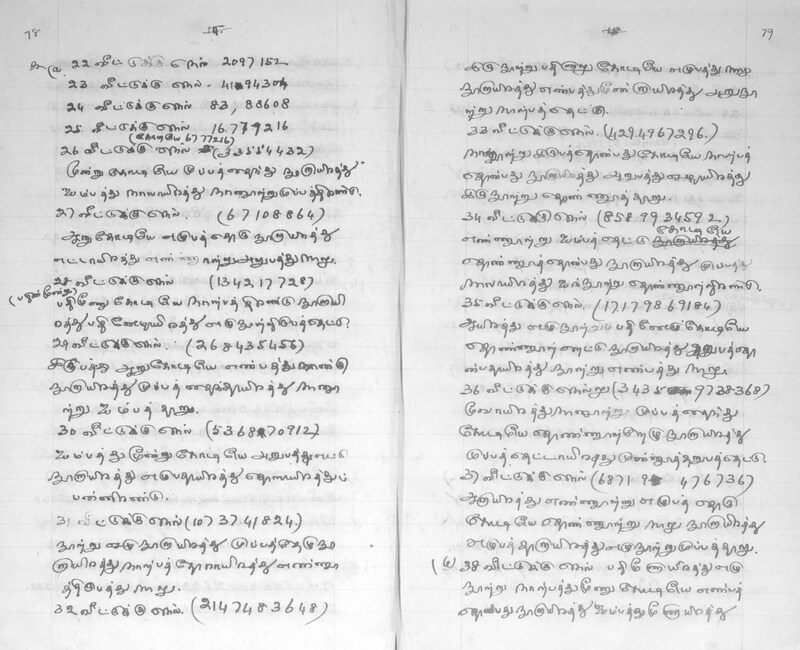 78
22 வீட்டுக்கு நெல் 2097152
23 வீட்டுக்கு நெல் - 4194304
24 வீட்டுக்கு நெல் 83,88608
25 வீட்டுக்கு நெல் 16.779216
(கோடியே 6777216)
26 வீட்டுக்கு நெல் (33554432)
மூன்று கோடியே முப்பத் தைந்து நூறாயிரத்து
ஐம்பத்து நாலாயிரத்து நானூற்று முப்பத்திரண்டு.
27 வீட்டுக்கு நெல் (67108864)
ஆறு கோடியே எழுபத் தொரு நூறாயிரத்து
எட்டாயிரத்து எண்ணூற்று அறுபத்து நாலு.
28 வீட்டுக்கு நெல் (134217728)
(பதின்மூன்று)
பதிமூணு கோடியே நாற்பத் திரண்டு நூறாயி
ரத்து பதினேழாயிரத்து எழுநூற்றிருபத் தெட்டு
29 வீட்டுக்கு நெல். (268435456)
இருபத்து ஆறு கோடியே எண்பத்து நாண்கு
நூறாயிரத்து முப்பத் தைந்தாயிரத்து நானூ
ற்று ஐம்பத் தாறு.
30 வீட்டுக்கு நெல் (536870912)
ஐம்பத்து மூன்று கோடியே அறுபத்து எட்டு
நூறாயிரத்து எழுபதாயிரத்து தொளாயிரத்துப்
பன்னிரண்டு.
31 வீட்டுக்கு நெல் (10737.41824.)
நூற்று ஏழு நூறாயிரத்து முப்பத்தேழு நூ
றாயிரத்து நாற்பத் தோராயிரத்து எண்ணூ
த்திருபத்து நாலு.
32 வீட்டுக்கு நெல். (2147483648)
79
இரு நூற்று பதினாலு கோடியே எழுபத்து நாலு
நூறாயிரத்து எண்பத்து மூணாயிரத்து அறுநூ
ற்று நாற்பத்தெட்டு.
33 வீட்டுக்கு நெல். (429.4967296.)
நானூற்று இருபத்தொன்பது கோடியே நாற்பத்
தொன்பது நூறாயிரத்து அறுபத்து ஏழாயிரத்து
இரு நூற்று தொண்ணூத் தாறு.
34 வீட்டுக்கு நெல் (8589934592)
கோடியே
எண்ணூற்று ஐம்பத் தெட்டு நூறாயிரத்து
தொண்ணூத் தொன்பது நூறாயிரத்து முப்பத்து
நாலாயிரத்து ஐந்நூற்று தொண்ணூத்திரண்டு.
35 வீட்டுக்கு நெல். (17179869184)
ஆயிரத்து எழு நூற்று பதினேழு கோடியே
தொண்ணூற் றெட்டு நூறாயிரத்து அறுபத் தொ
ன்பதாயிரத்து நூற்று எண்பத்து நாலு.
36 வீட்டுக்கு நெல் (3435 9738368)
மூவாயிரத்து நானூற்று முப்பத் தைந்து
கோடியே தொண்ணூற்றேழு நூறாயிரத்து
முப்பத் தெட்டாயிரத்து முன்னூத்தறுபத்தெட்டு.
37 வீட்டுக்கு நெல் (6871 9 476736)
ஆறாயிரத்து எண்ணூற்று எழுபத் தொரு
கோடியே தொண்ணூற்று நாலு நூறாயிரத்து
எழுபத் தாறாயிரத்து எழு நூற்று முப்பத் தாறு.
38 வீட்டுக்கு நெல் பதிமூணாயிரத்து எழு
நூற்று நாற்பத்து மூணு கோடியே எண்பத்
தொன்பது நூறாயிரத்து ஐம்பத்து மூணாயிரத்து